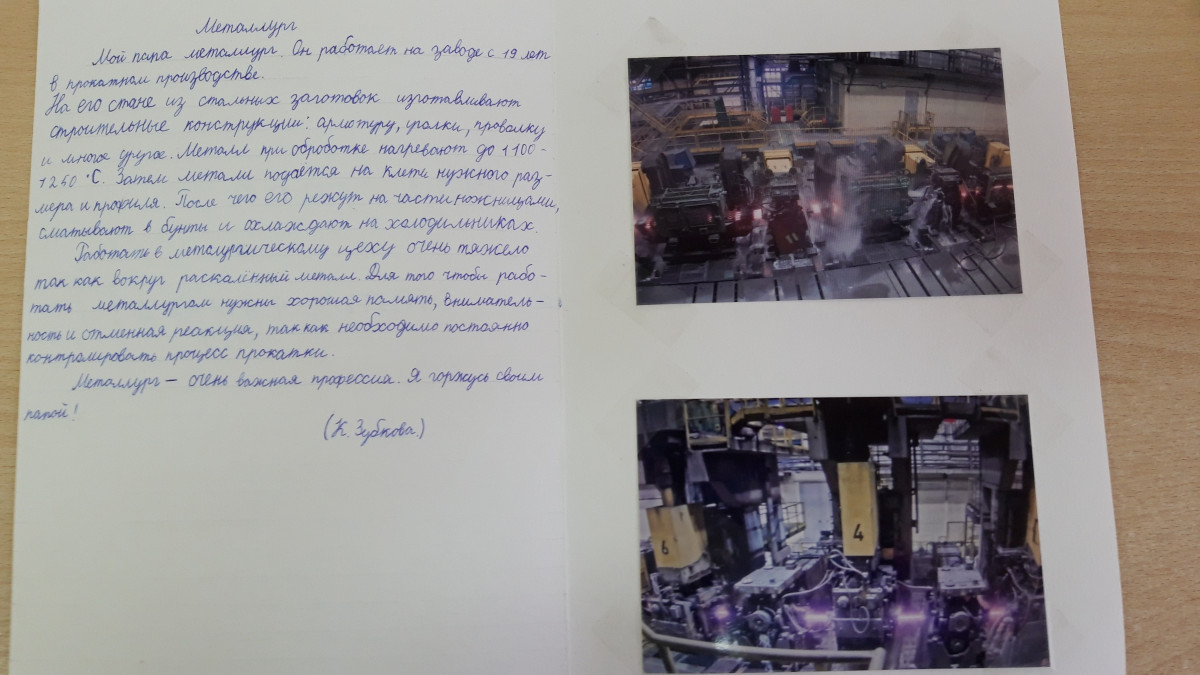 Металлург
Мой папа металлург. Он работает на заводе с 19 лет
в прокатном производстве.
На его стане из стальных заготовок изготавливают
строительные конструкции: арматуру, уголки, проволку
и многое другое. Металл при обработке нагревают до 1100-
1250 °С. Затем металл подаётся на клети нужного раз-
мера и профиля. После чего его режут на части ножницами,
сматывают в бунты и охлаждают на холодильниках.
Работать в металургическому цеху очень тяжело
так как вокруг раскалённый металл. Для того чтобы рабо-
тать металлургам нужны хорошая память, вниматель-
ность и отменная реакция, так как необходимо постоянно
контролировать процесс прокатки.
Металлург — очень важная профессия. Я горжусь своим
папой!
(К. Зубкова.)
6
4